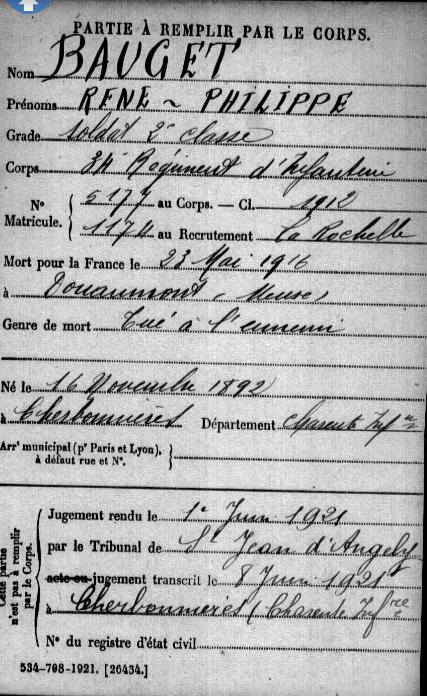 PARTIE À REMPLIR PAR LE CORPS.
Nom BAUGET
Prénoms RENE ~ PHILIPPE
Grade Soldat 2e classe
Corps 34e Régiment d'Infanterie
N° Matricule. { 5177 au Corps. — Cl. 1912
1174 au Recrutement La Rochelle
Mort pour la France le 23 Mai 1916
à Douaumont (Meuse)
Genre de mort Tué à l'ennemi
Né le 16 Novembre 1892
à Cherbonnières Département Charente Infre
Arrt municipal (pr Paris et Lyon), à défaut rue et N°. }
Cette partie n'est pas à remplir par le Corps.
Jugement rendu le 1er Juin 1921
par le Tribunal de St Jean d'Angely
acte ou jugement transcrit le 8 Juin 1921
à Cherbonnieres (Charente Infre
N° du registre d'état civil
534-708-1921. [26434.]